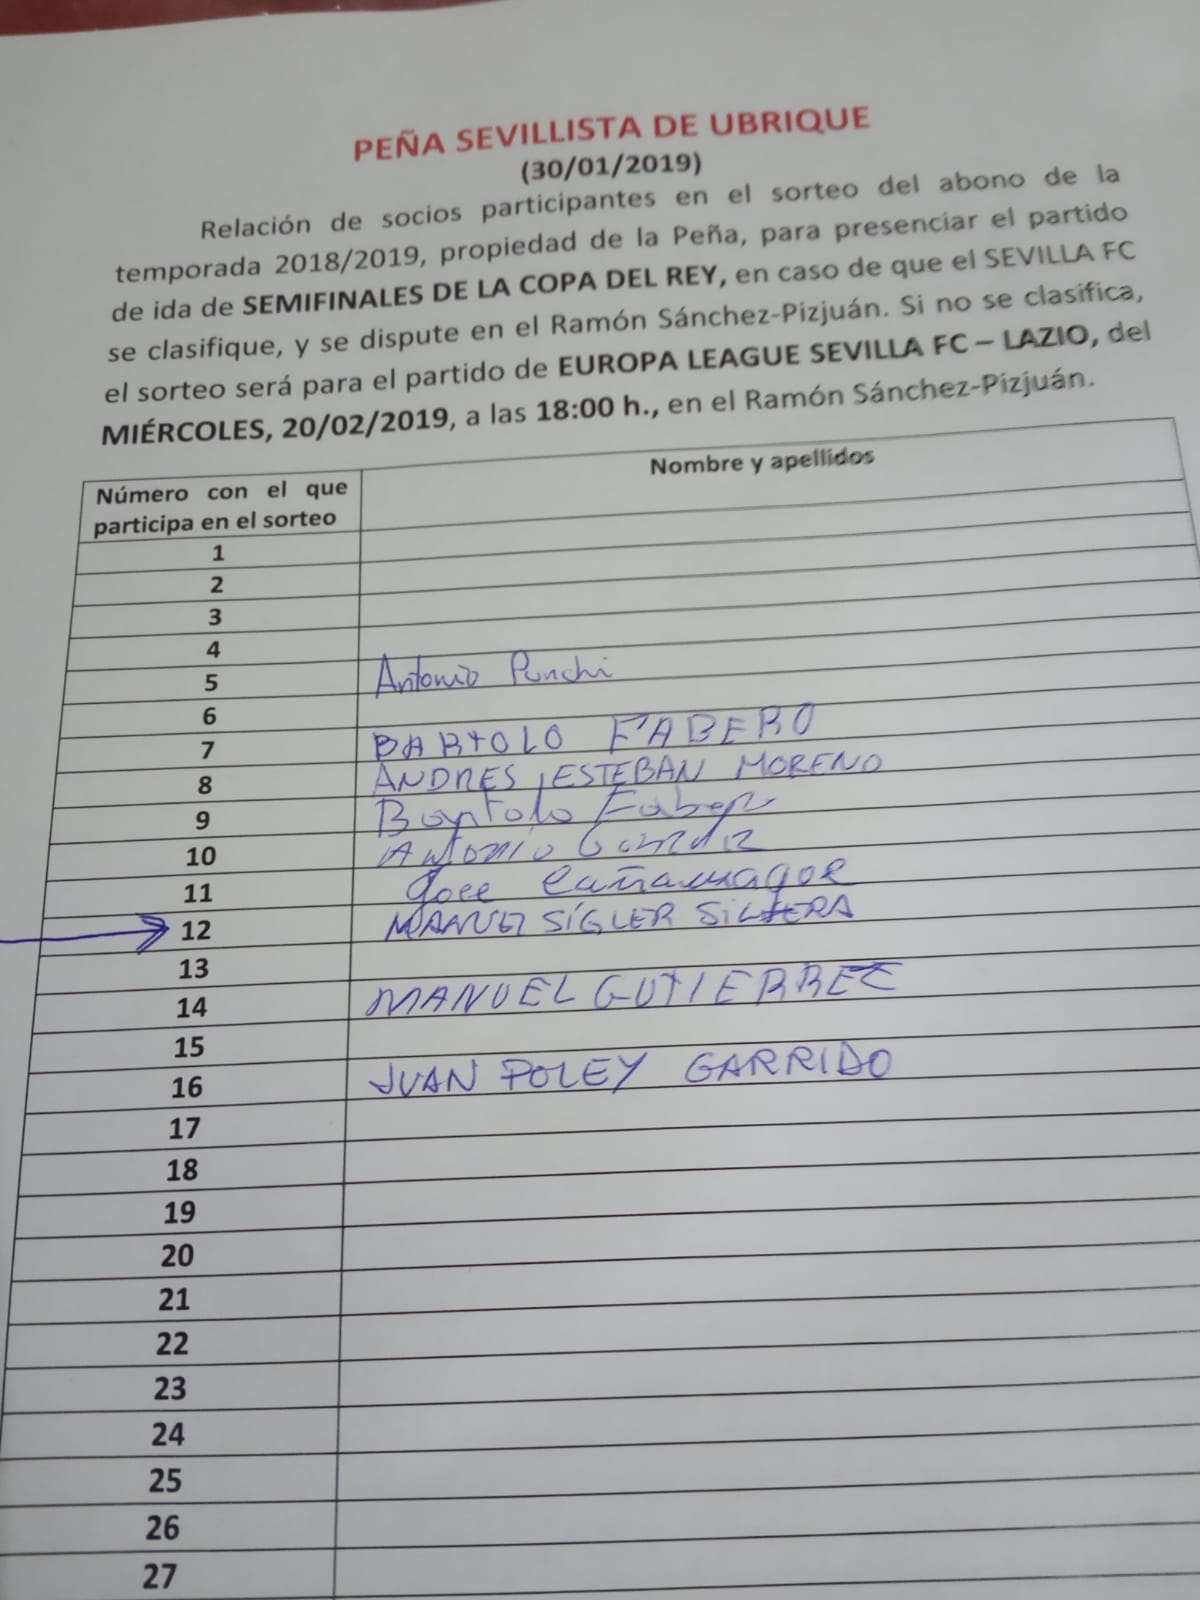 PEÑA SEVILLISTA DE UBRIQUE
(30/01/2019)
Relación de socios participantes en el sorteo del abono de la
temporada 2018/2019, propiedad de la Peña, para presenciar el partido
de ida de SEMIFINALES DE LA COPA DEL REY, en caso de que el SEVILLA FC
se clasifique, y se dispute en el Ramón Sánchez-Pizjuán. Si no se clasifica,
el sorteo será para el partido de EUROPA LEAGUE SEVILLA FC – LAZIO, del
MIÉRCOLES, 20/02/2019, a las 18:00 h., en el Ramón Sánchez-Pizjuán.
Número con el que participa en el sorteo Nombre y apellidos
1
2
3
4
5 Antonio
6
7 BARTOLO FABERO
8 ANDRES ESTEBAN MORENO
9 Bartolo
10 Antonio
11 Jose Cañamaque
12 MANUEL SÍGLER
13
14 MANUEL GUTIERREZ
15
16 JUAN POLEY GARRIDO
17
18
19
20
21
22
23
24
25
26
27